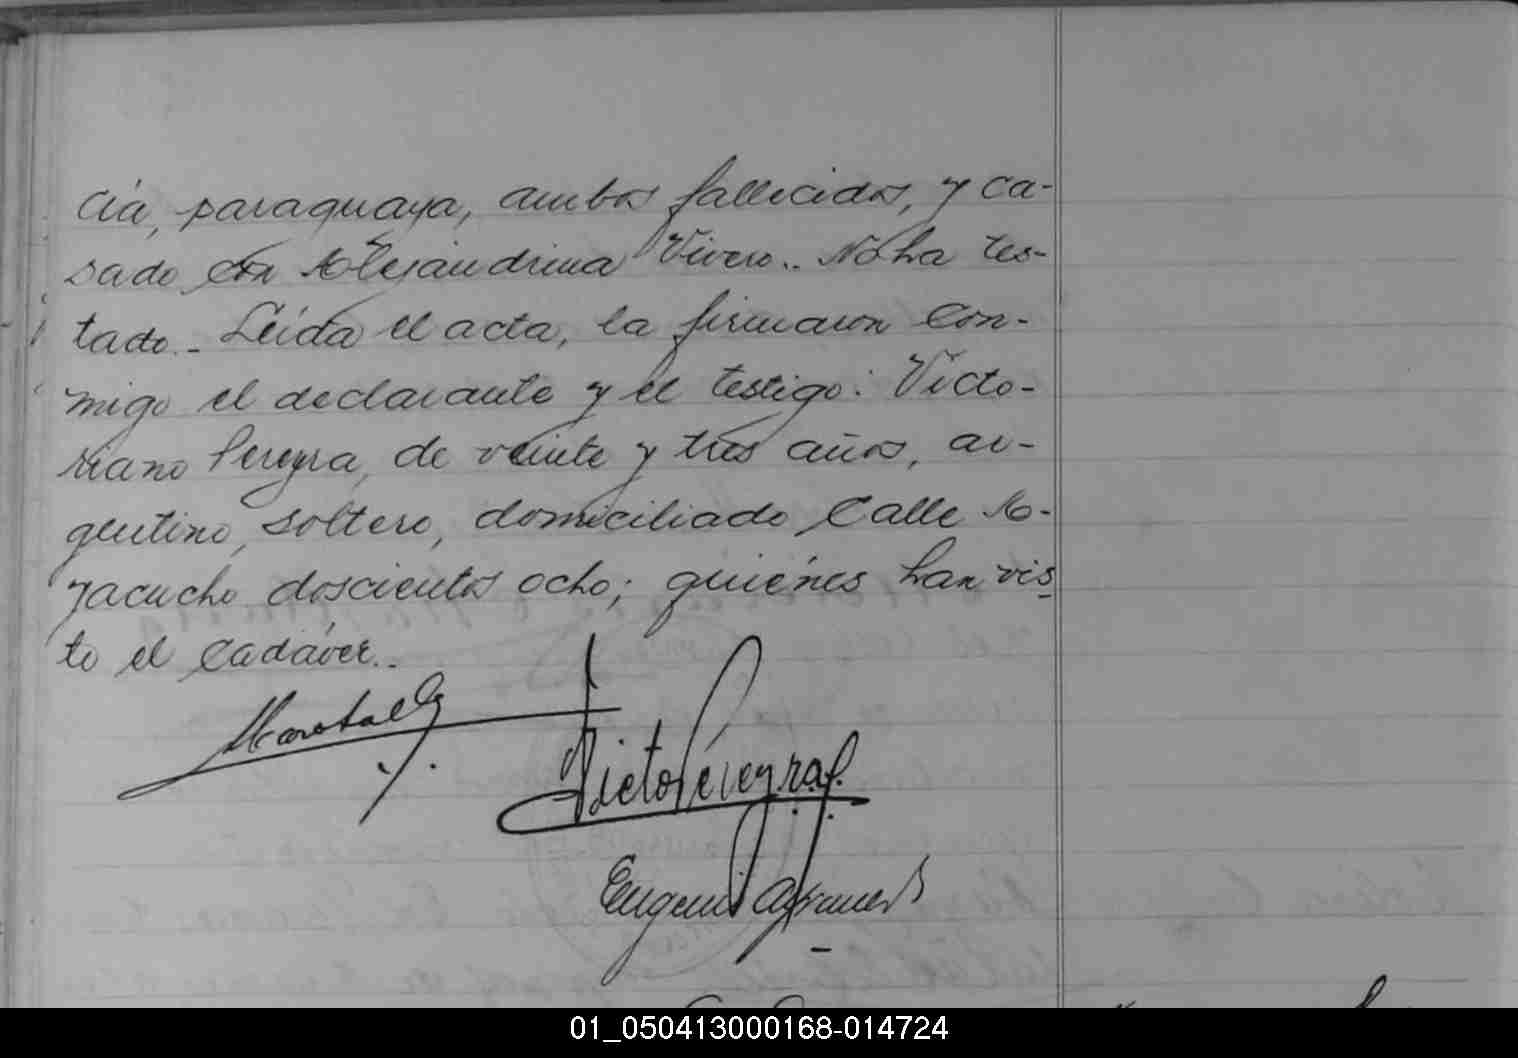 cia, paraguaya, ambos fallecidos, y ca-
sado con Alejandrina Vivero.. No ha tes-
tado.- Leida el acta, la firmaron con-
migo el declarante y el testigo: Victo-
riano Pereyra, de veinte y tres años, ar-
gentino, soltero, domiciliado Calle A-
yacucho doscientos ocho; quiénes han vis-
to el cadáver..
Victor Pereyra f.
Eugenio
01_050413000168-014724